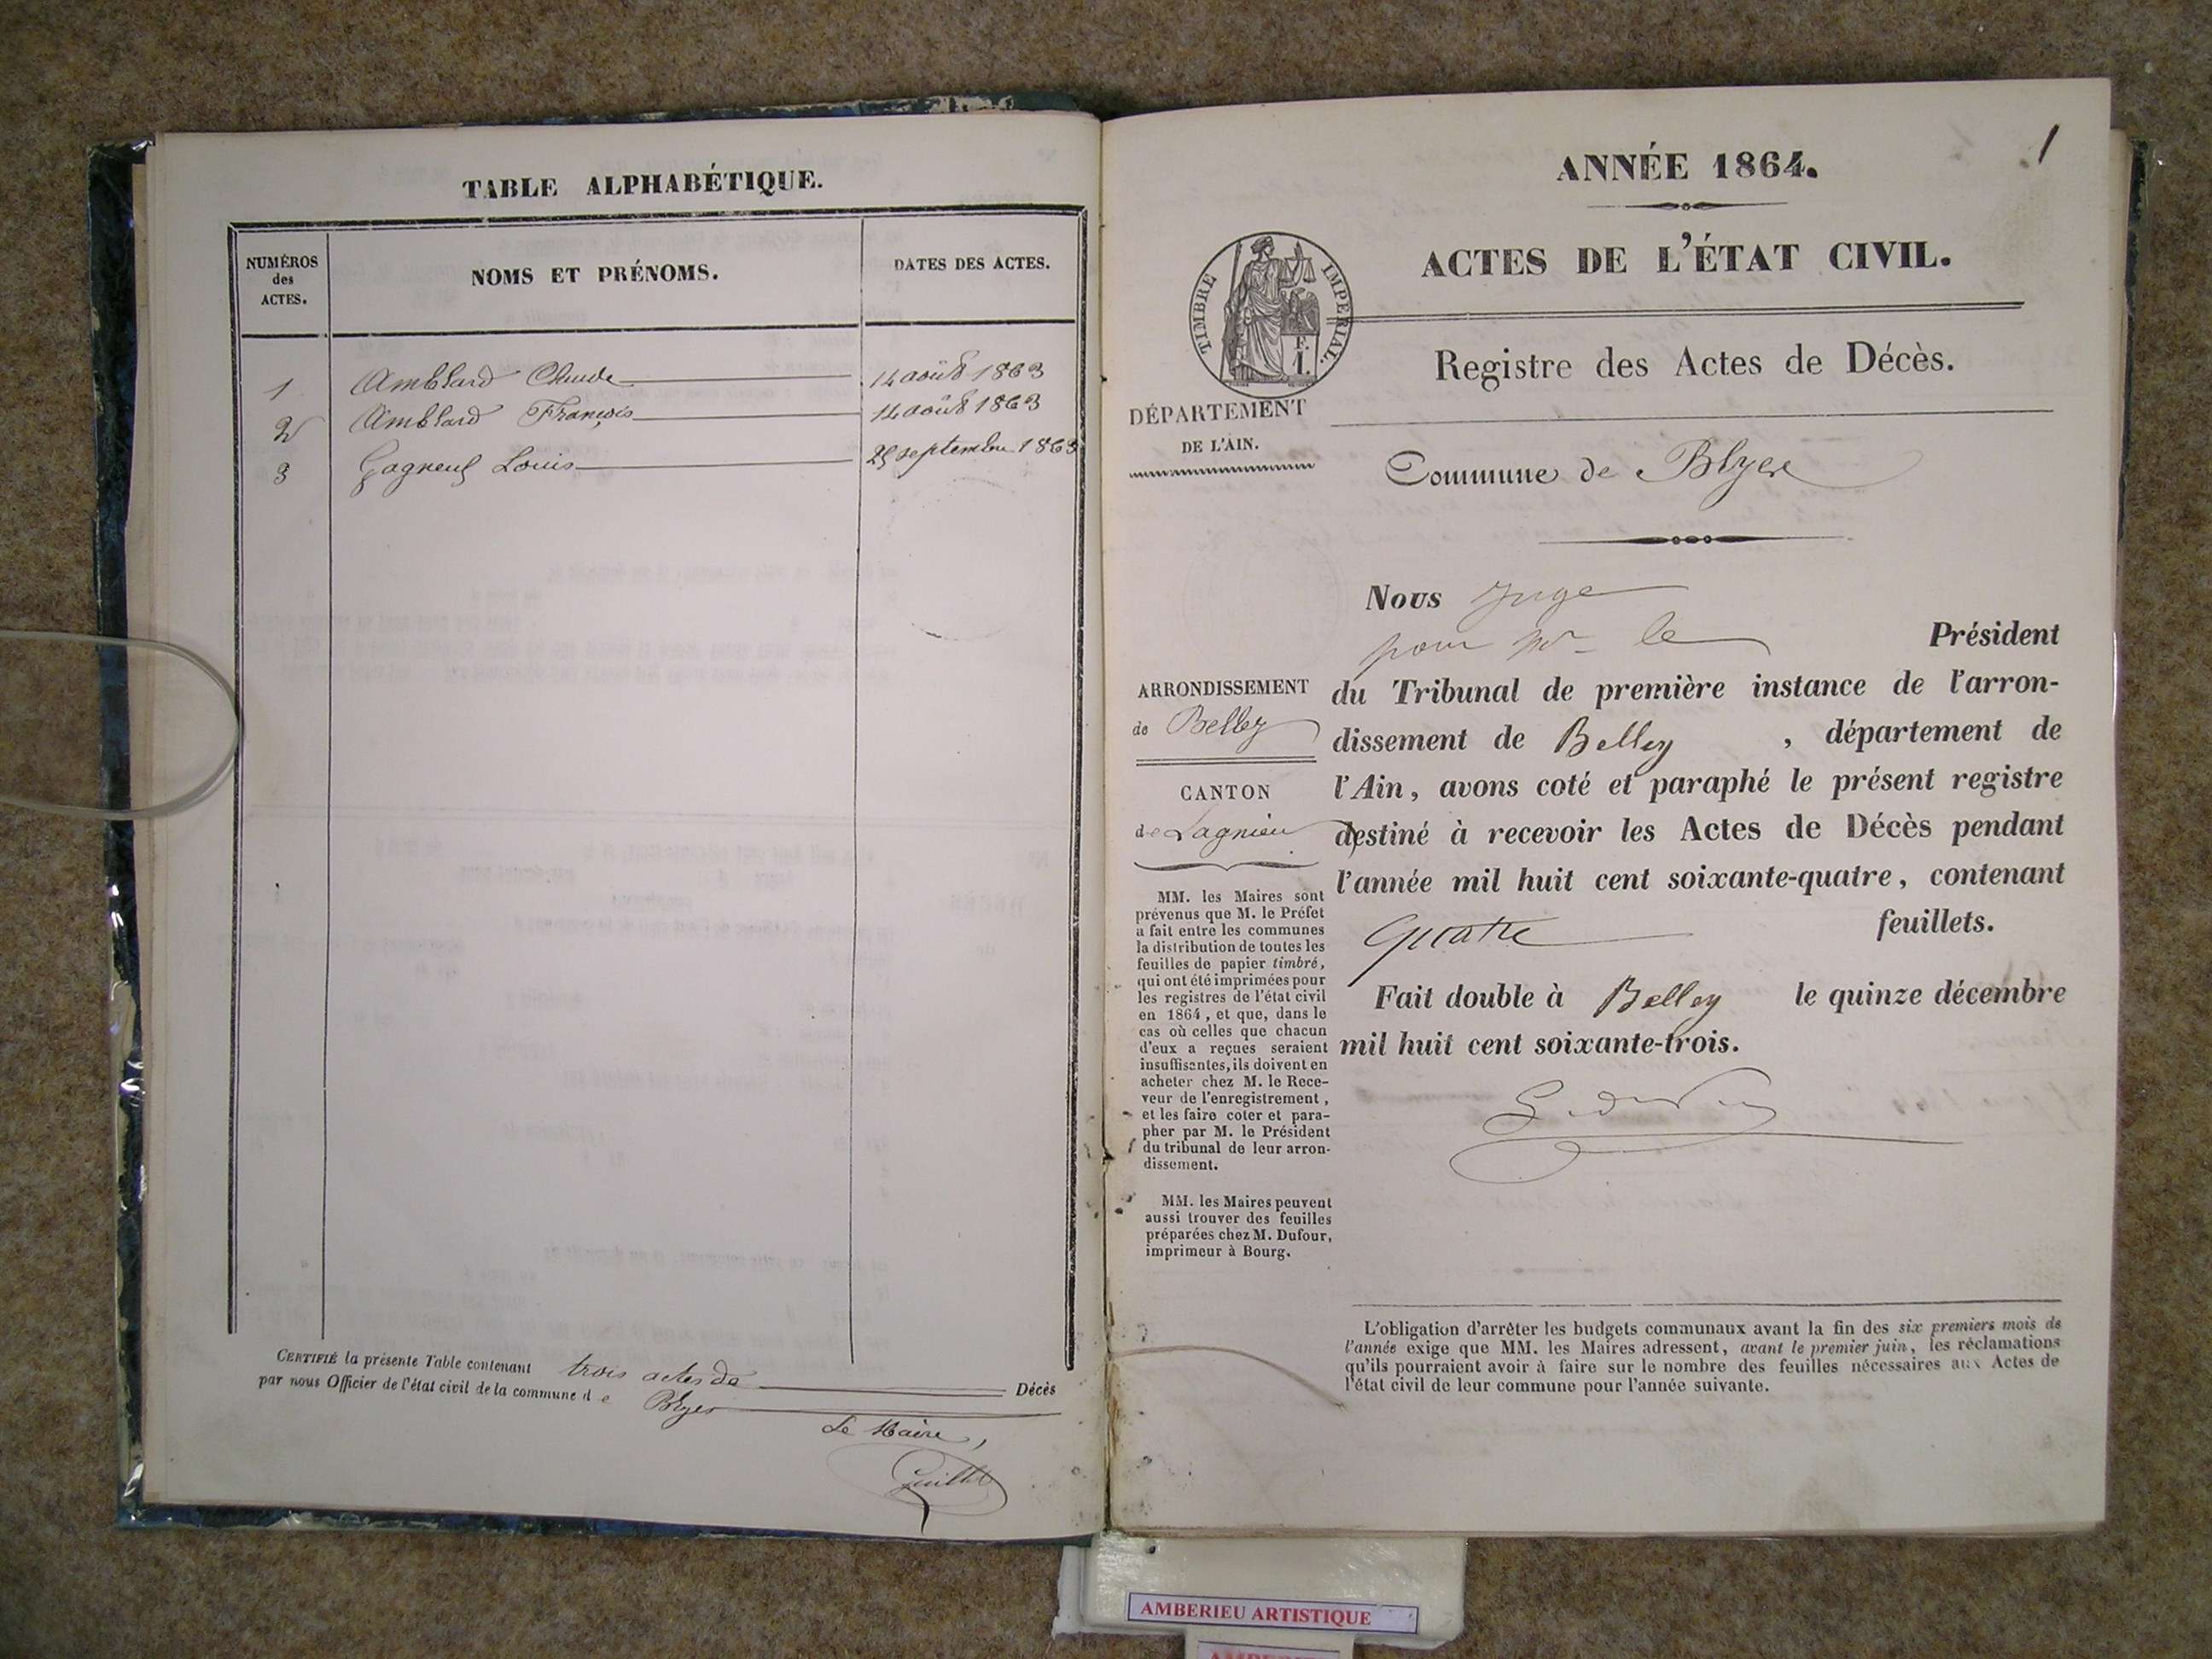 TABLE ALPHABÉTIQUE.
NUMÉROS
des
ACTES.
NOMS ET PRÉNOMS.
DATES DES ACTES.
1 Amblard Claude 14 août 1863
2 Amblard François 14 août 1863
3 Gagneux Louis 25 septembre 1863
CERTIFIÉ la présente Table contenant trois actes de Décès
par nous Officier de l'état civil de la commune de Blyes
Le Maire,
1
ANNÉE 1864.
ACTES DE L'ÉTAT CIVIL.
TIMBRE IMPERIAL.
F.
1.
Registre des Actes de Décès.
DÉPARTEMENT
DE L'AIN.
Commune de Blyes
Nous Juge
pour Mr le Président
du Tribunal de première instance de l'arron-
dissement de Belley, département de
l'Ain, avons coté et paraphé le présent registre
destiné à recevoir les Actes de Décès pendant
l'année mil huit cent soixante-quatre, contenant
Quatre feuillets.
Fait double à Belley le quinze décembre
mil huit cent soixante-trois.
ARRONDISSEMENT
de Belley
CANTON
de Lagnieu
MM. les Maires sont
prévenus que M. le Préfet
a fait entre les communes
la distribution de toutes les
feuilles de papier timbré,
qui ont été imprimées pour
les registres de l'état civil
en 1864, et que, dans le
cas où celles que chacun
d'eux a reçues seraient
insuffisantes, ils doivent en
acheter chez M. le Rece-
veur de l'enregistrement,
et les faire coter et para-
pher par M. le Président
du tribunal de leur arron-
dissement.
MM. les Maires peuvent
aussi trouver des feuilles
préparées chez M. Dufour,
imprimeur à Bourg.
L'obligation d'arrêter les budgets communaux avant la fin des six premiers mois de
l'année exige que MM. les Maires adressent, avant le premier juin, les réclamations
qu'ils pourraient avoir à faire sur le nombre des feuilles nécessaires aux Actes de
l'état civil de leur commune pour l'année suivante.
AMBERIEU ARTISTIQUE